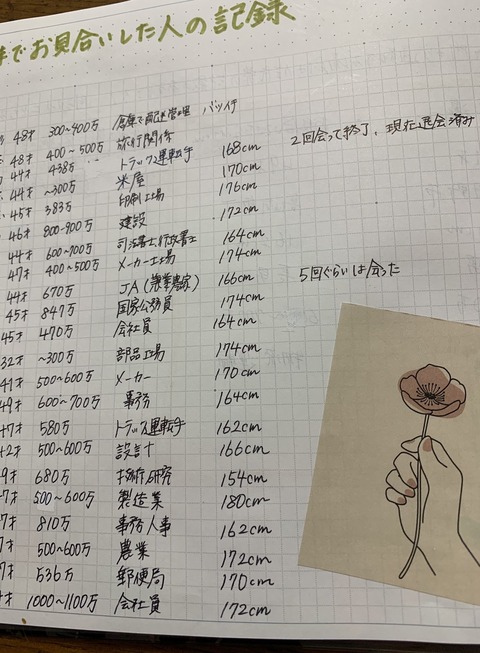 でお見合いした人の記録
48才 300~400万 倉庫で配送管理 バツイチ
48才 400~500万 旅行関係 168cm 2回会って終了、現在退会済み
44才 438万 トラック運転手 170cm
44才 ~300万 米屋 176cm
45才 383万 印刷工場 172cm
46才 800~900万 建設 164cm
44才 600~700万 司法書士行政書士 174cm
47才 400~500万 メーカー工場 166cm 5回ぐらいは会った
44才 670万 JA(兼業農家) 174cm
45才 847万 国家公務員 164cm
45才 470万 会社員 174cm
32才 ~300万 部品工場 170cm
41才 500~600万 メーカー 164cm
49才 600~700万 事務 162cm
47才 580万 トラック運転手 166cm
42才 500~600万 設計 154cm
9才 680万 技術研究 180cm
7才 500~600万 製造業 162cm
7才 810万 事務人事 172cm
7才 500~600万 農業 170cm
7才 536万 郵便局 172cm
才 1000~1100万 会社員